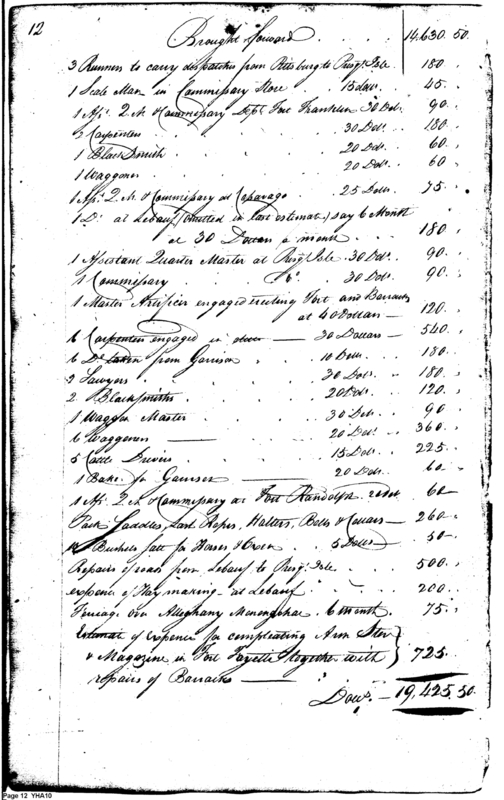 12
Brought Forward . . . . 14.630. 50.
3 Runners to carry dispatches from Pittsburg to Presq'Isle 180
1 Scale Man in Commissary Store . 15 dolrs . . 45
1 Ast. Q.M. & Commissary Dept Fort Franklin 30 Dol. 90
2 Carpenters . . . 30 Dols. . . 180
1 Black Smith . . . 20 Dols. . . 60
1 Waggoner . . . 20 Dols. . . 60
1 Ast. Q.M. & Commissary at . 25 Dolls . . 75
1 Do at Lebauf (omitted in last estimate) say 6 Months
at 30 Dollars a month . . 180
1 Assistant Quarter Master at Presq'Isle 30 Dols. . . 90
1 Commissary . . Do . 30 Dols. . . 90
1 Master Artificer engaged erecting Fort and Barracks
at 40 Dollars — 120
6 Carpenters engaged in — 30 Dollars — 540
6 Do taken from Garrison . . 10 Dolls . . 180
2 Sawyers . . . 30 Dols . . 180
2 Blacksmiths . . . 20 Dols . . 120
1 Waggon Master . . . 30 Dols . . 90
6 Waggoners — . 20 Dols . . 360
5 Cattle Drivers . . . 15 Dols . . 225
1 Baker for Garrison — 20 Dols. . 60
1 Ast. Q.M. & Commissary at Fort Randolph 60
Pack Saddles, Lash Ropes, Halters, Bells & Collars — 260
Bushels salt for Horses & Oxen . 5 Dollrs — 50
Repairs of roads from Lebauf to Presq'Isle . 500
expence of Hay making at Lebauf . . 200
Ferriage over Alleghany Monongahae . 6 month . 75
Estimate of expence for compleating Arm Store
& Magazine in Fort Fayette together with } 725
repairs of Barracks —
Dolrs. — 19,425.50
Page 12 YHA10